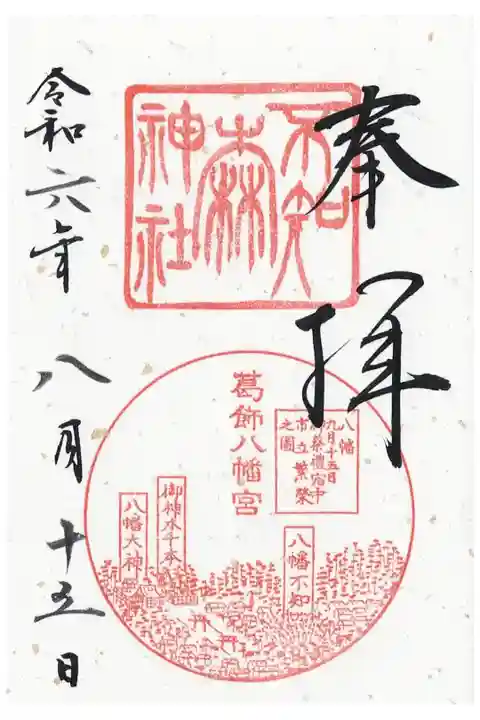 奉拝
不知
森
神社
葛飾八幡宮
八幡
九月十五日
祭禮宿中
市立繁榮
之圖
八幡不知
御神木千本
八幡大神
令和六年八月十五日